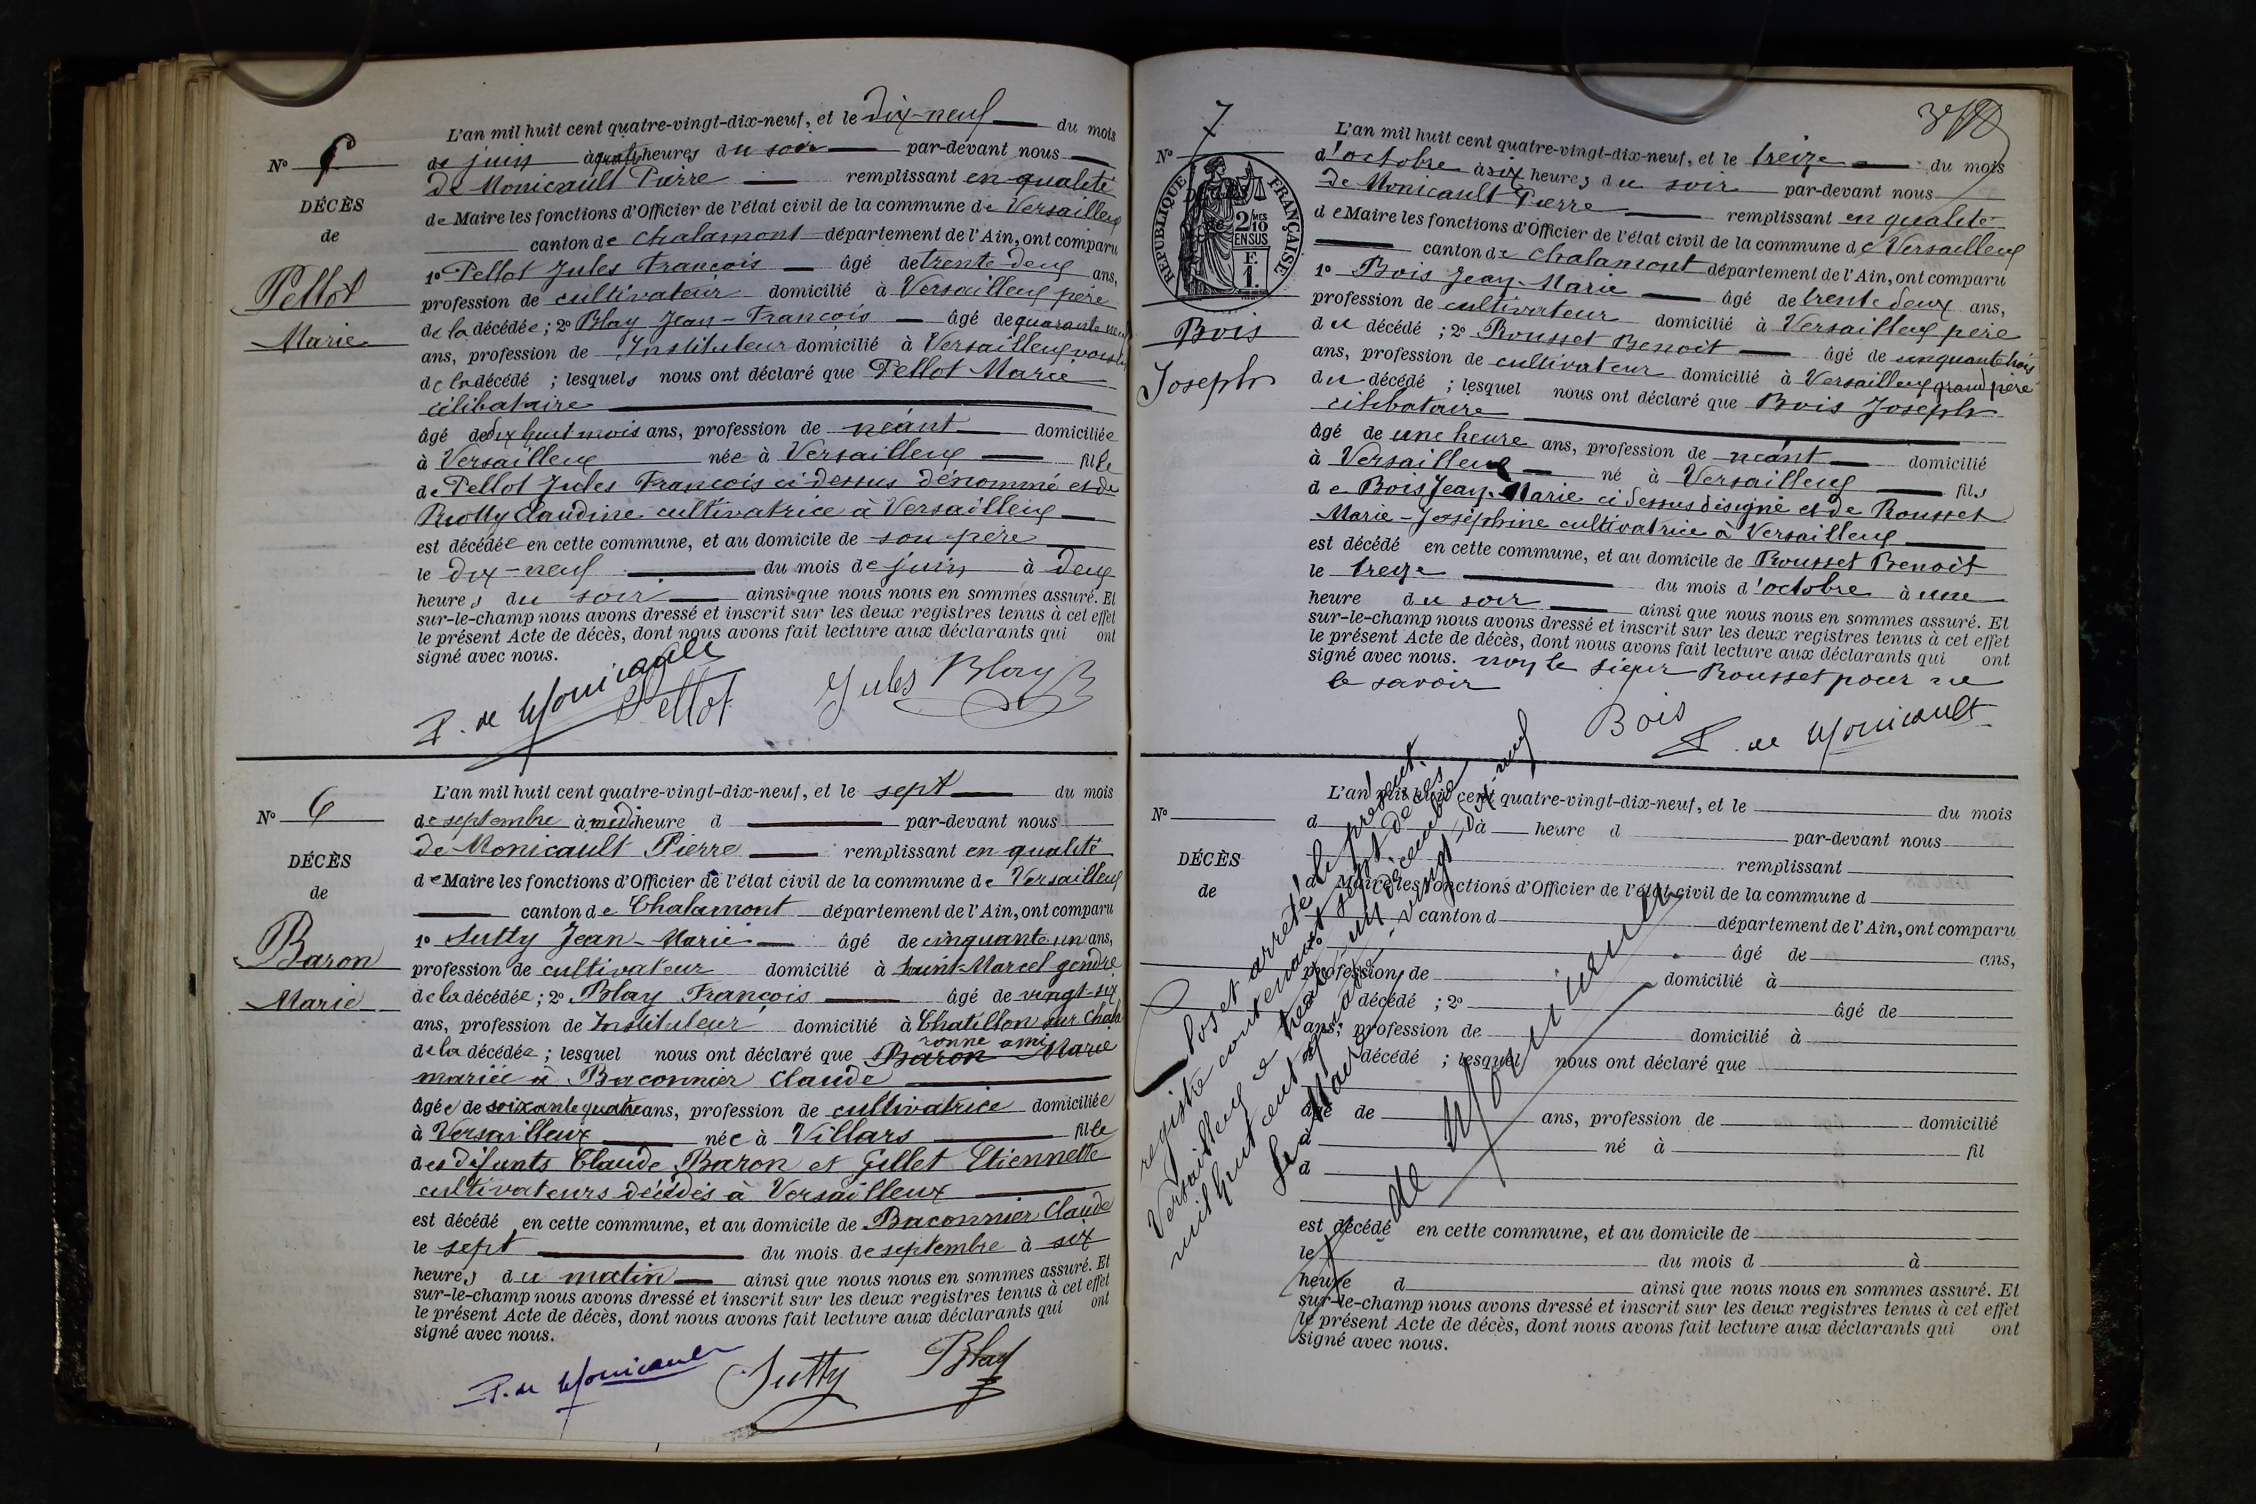 L'an mil huit cent quatre-vingt-dix-neuf, et le dix-neuf du mois
N°
de juin à quatre heures du soir par-devant nous
de Monicault Pierre remplissant en qualité
DÉCÈS
de Maire les fonctions d'Officier de l'état civil de la commune de Versailleux
de
canton de Chalamont département de l'Ain, ont comparu
1° Pellot Jules François âgé de trente deux ans,
Pellot
profession de cultivateur domicilié à Versailleux père
de la décédée ; 2° Blay Jean-François âgé de quarante
Marie
ans, profession de Instituteur domicilié à Versailleux voisin
de la décédé ; lesquels nous ont déclaré que Pellot Marie
célibataire
âgé de dix huit mois ans, profession de néant domiciliée
à Versailleux née à Versailleux fille
de Pellot Jules François ci dessus dénommé et de
Claudine cultivatrice à Versailleux
est décédée en cette commune, et au domicile de son père
le dix-neuf du mois de juin à deux
heures du soir ainsi que nous nous en sommes assuré. Et
sur-le-champ nous avons dressé et inscrit sur les deux registres tenus à cet effet
le présent Acte de décès, dont nous avons fait lecture aux déclarants qui ont
signé avec nous.
P. de Monicault Pellot Jules Blay
L'an mil huit cent quatre-vingt-dix-neuf, et le sept du mois
N° 6
de septembre à midi heure d par-devant nous
de Monicault Pierre remplissant en qualité
DÉCÈS
de Maire les fonctions d'Officier de l'état civil de la commune de Versailleux
de
canton de Chalamont département de l'Ain, ont comparu
1° Sutty Jean-Marie âgé de cinquante un ans,
Baron
profession de cultivateur domicilié à Saint-Marcel gendre
de la décédée ; 2° Blay François âgé de vingt-six
Marie
ans, profession de Instituteur domicilié à Chatillon sur Chala
ronne ami
de la décédée ; lesquel nous ont déclaré que Baron Marie
mariée à Baconnier Claude
âgée de soixante quatre ans, profession de cultivatrice domiciliée
à Versailleux née à Villars fille
des défunts Claude Baron et Gillet Etiennette
cultivateurs décédés à Versailleux
est décédé en cette commune, et au domicile de Baconnier Claude
le sept du mois de septembre à six
heures du matin ainsi que nous nous en sommes assuré. Et
sur-le-champ nous avons dressé et inscrit sur les deux registres tenus à cet effet
le présent Acte de décès, dont nous avons fait lecture aux déclarants qui ont
signé avec nous.
P. de Monicault Sutty Blay
7
L'an mil huit cent quatre-vingt-dix-neuf, et le treize du mois
N°
d'octobre à six heures du soir par-devant nous
RÉPUBLIQUE FRANÇAISE
2 MES 10 EN SUS
F. 1.
de Monicault Pierre remplissant en qualité
de Maire les fonctions d'Officier de l'état civil de la commune de Versailleux
canton de Chalamont département de l'Ain, ont comparu
1° Bois Jean-Marie âgé de trente deux ans,
profession de cultivateur domicilié à Versailleux père
Bois
du décédé ; 2° Rousset Benoit âgé de cinquante trois
ans, profession de cultivateur domicilié à Versailleux grand père
Joseph
du décédé ; lesquel nous ont déclaré que Bois Joseph
célibataire
âgé de une heure ans, profession de néant domicilié
à Versailleux né à Versailleux fils
de Bois Jean-Marie ci dessus désigné et de Rousset
Marie-Joséphine cultivatrice à Versailleux
est décédé en cette commune, et au domicile de Rousset Benoit
le treize du mois d'octobre à une
heure du soir ainsi que nous nous en sommes assuré. Et
sur-le-champ nous avons dressé et inscrit sur les deux registres tenus à cet effet
le présent Acte de décès, dont nous avons fait lecture aux déclarants qui ont
signé avec nous. non le sieur Rousset pour ne
le savoir
Bois P. de Monicault
L'an mil huit cent quatre-vingt-dix-neuf, et le du mois
N°
d à heure d par-devant nous
remplissant
DÉCÈS
d Maire les fonctions d'Officier de l'état civil de la commune d
de
canton d département de l'Ain, ont comparu
âgé de ans,
profession de domicilié à
décédé ; 2° âgé de
ans, profession de domicilié à
décédé ; lesquel nous ont déclaré que
âgé de ans, profession de domicilié
à né à fil
d
est décédé en cette commune, et au domicile de
le du mois d à
heure d ainsi que nous nous en sommes assuré. Et
sur-le-champ nous avons dressé et inscrit sur les deux registres tenus à cet effet
le présent Acte de décès, dont nous avons fait lecture aux déclarants qui ont
signé avec nous.
Clos et arrêté le présent
registre contenant sept décès
Versailleux le trente un décembre
mil huit cent quatre-vingt-dix-neuf
Le Maire
P. de Monicault